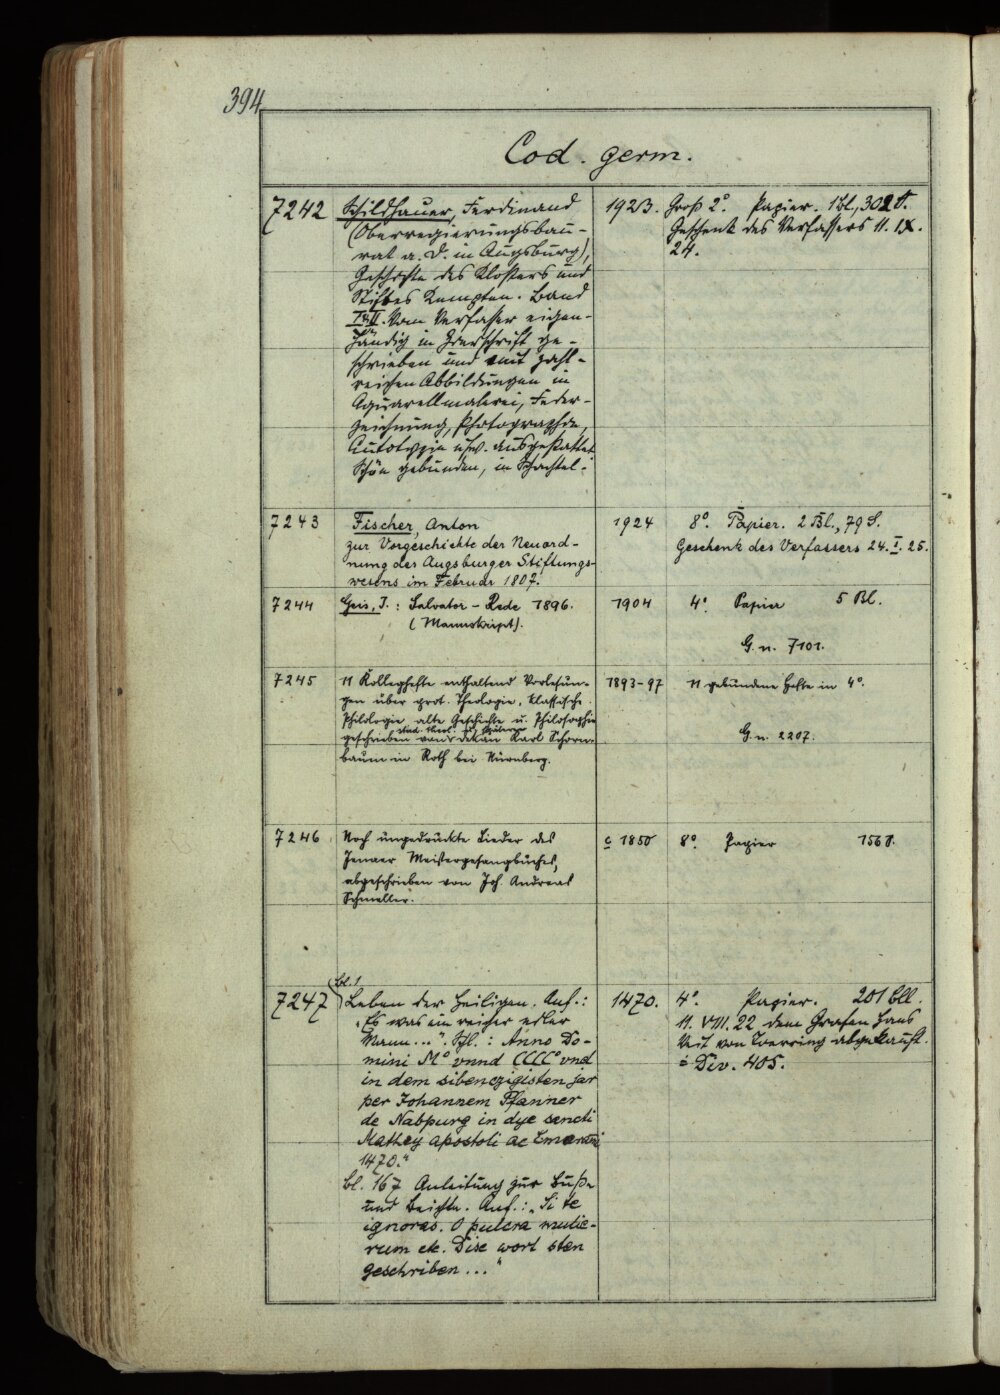 394
Cod. germ.
7242 Schildhauer, Ferdinand
(Oberregierungsbau-
rat a. D. in Augsburg),
Geschichte des Klosters und
Stiftes Kempten. Band
I & II. Vom Verfasser eigen-
händig in Zierschrift ge-
schrieben und mit zahl-
reichen Abbildungen in
Aquarellmalerei, Feder-
zeichnung, Photographie,
Autotypie usw. ausgestattet.
Schön gebunden, in Schachtel.
1923. Groß 2°. Papier. 1 Bl., 302 S.
Geschenk des Verfassers 11. IX.
24.
7243 Fischer, Anton
zur Vorgeschichte der Neuord-
nung des Augsburger Stiftungs-
wesens im Februar 1807.
1924 8°. Papier. 2 Bl., 79 S.
Geschenk des Verfassers 24. I. 25.
7244 Geis, J.: Salvator - Rede 1896.
(Manuskript).
1904 4°. Papier 5 Bl.
G. n. 7101.
7245 11 Kolleghefte enthaltend Vorlesun-
gen über prot. Theologie, klassische
Philologie, alte Geschichte u. Philosophie
geschrieben von Dekan Karl Schorn-
baum in Roth bei Nürnberg.
1893-97 11 gebundene Hefte in 4°.
G. n. 2207.
7246 Noch ungedruckte Lieder des
Jenaer Meistergesangbuches,
abgeschrieben von Joh. Andreas
Schmeller.
c 1850 8°. Papier 156 S.
bl. 1
7247 Leben der Heiligen. Anf.:
„Es was ein reicher edler
Mann..." Schl.: Anno Do-
mini M° vnnd CCCC° vnd
in dem sibenczigisten jar
per Johannem Pfanner
de Nabpurg in dye sancti
Mathey apostoli ac Emerami
1470."
bl. 167 Anleitung zur Buße
und Beichte. Anf.: „Si te
ignoras. O pulcra mulie-
rum etc. Dise wort sten
geschriben..."
1470. 4°. Papier. 201 bll.
11. VIII. 22 dem Grafen Hans
Veit von Toerring abgekauft.
= Div. 405.